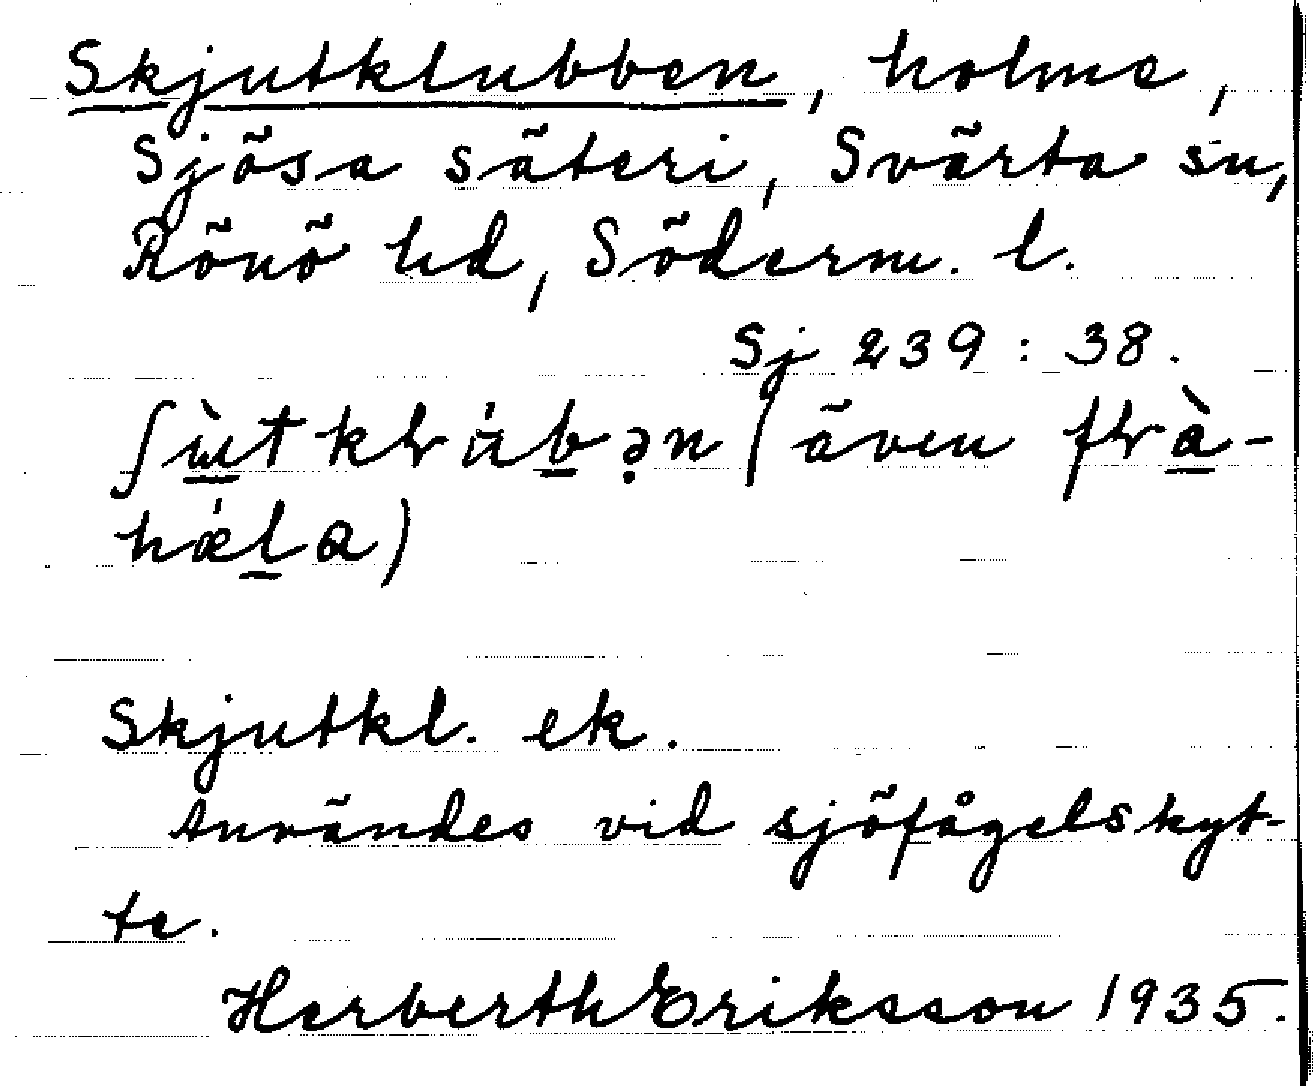 Skjutklubben, holme,
Sjösa säteri, Svärta sn,
Rönö hd, Söderm. l.
Sj 239 : 38.
(även
Skjutkl. ek.
Användes vid sjöfågelskyt-
te.
Herberth Eriksson 1935.